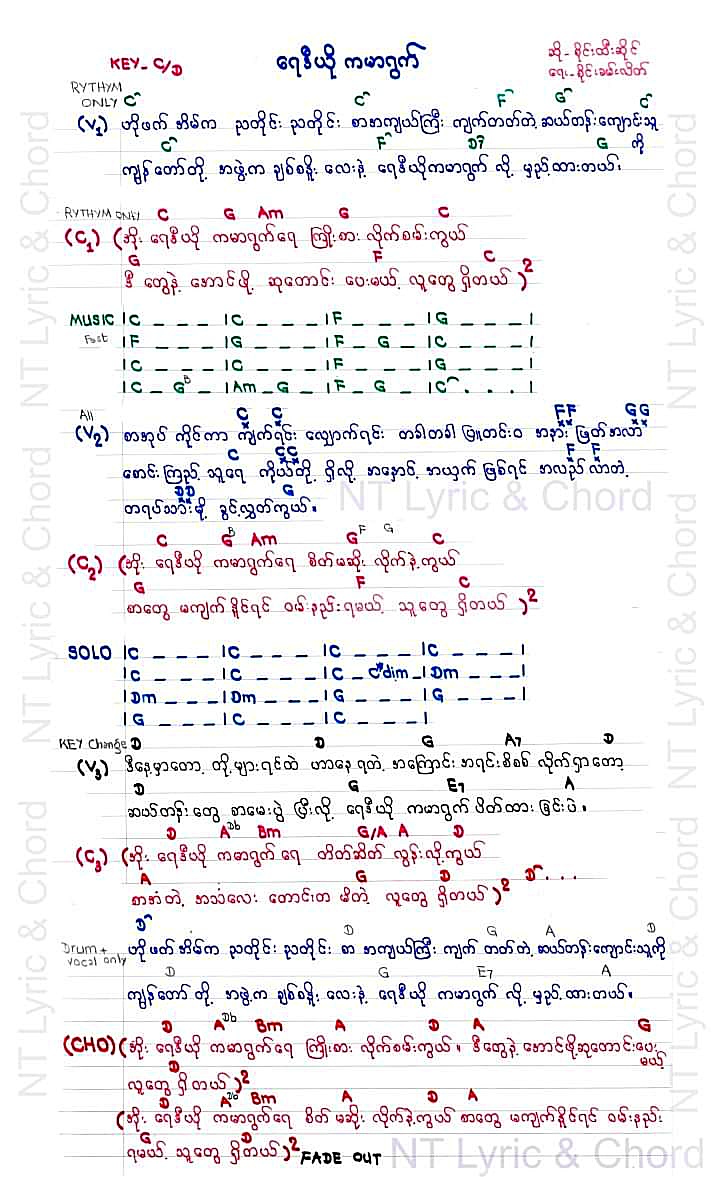 KEY- C/D
ရေဒီယို ကမာရွက်
ဆို - စိုင်းထီးဆိုင်
ရေး - စိုင်းခမ်းလိတ်
RYTHYM ONLY C C F G C
(V1) ဟိုဖက် အိမ်က ညတိုင်း ညတိုင်း စာအကျယ်ကြီး ကျက်တတ်တဲ့ ဆယ်တန်းကျောင်းသူကို
C F D7 G
ကျွန်တော်တို့ အဖွဲ့က ချစ်စနိုး လေးနဲ့ ရေဒီယိုကမာရွက် လို့ မှည့်ထားတယ်၊
RYTHYM ONLY C G Am G C
(C1) (အိုး ရေဒီယို ကမာရွက်ရေ ကြိုးစား လိုက်စမ်းကွယ်
G F C
ဒီ တွေနဲ့ အောင်ဖို့ ဆုတောင်း ပေးမယ့် လူတွေ ရှိတယ် )2
MUSIC |C _ _ _ |C _ _ _ |F _ _ _ |G _ _ _ |
Fast |F _ _ _ |G _ _ _ |F _ G _ |C _ _ _ |
|C _ _ _ |C _ _ _ |F _ _ _ |G _ _ _ |
|C _ GB _ |Am _ G _ |F _ G _ |C . . . |
All C C FF GG
(V2) စာအုပ် ကိုင်ကာ ကျက်ရင်း လျှောက်ရင်း တခါတခါ ပြူတင်းဝ အနား ဖြတ်အလာ
C CC F F
စောင်းကြည့် သူရေ ကိုယ်တို့ ရှိလို့ အနှောင့် အယှက် ဖြစ်ရင် အလည် လာတဲ့
DD G
တရပ်သားမို့ ခွင့်လွှတ်ကွယ်။
C GB Am GF G C
(C2) (အိုး ရေဒီယို ကမာရွက်ရေ စိတ်မဆိုး လိုက်နဲ့ကွယ်
G F C
စာတွေ မကျက်နိုင်ရင် ဝမ်းနည်းရမယ့် သူတွေ ရှိတယ် )2
SOLO |C _ _ _ |C _ _ _ |C _ _ _ |C _ _ _ |
|C _ _ _ |C _ _ _ |C _ C#dim _ |Dm _ _ _ |
|Dm _ _ _ |Dm _ _ _ |G _ _ _ |G _ _ _ |
|G _ _ _ |C _ _ _ |C _ _ _ |
KEY Change D D G A7 D
(V3) ဒီနေ့မှာတော့ တို့များရင်ထဲ ဟာနေ ရတဲ့ အကြောင်း အရင်းစိစစ် လိုက်ရှာတော့
D G E7 A
ဆယ်တန်းတွေ စာမေးပွဲ ပြီးလို့ ရေဒီယို ကမာရွက် ပိတ်ထား ခြင်းပဲ။
D ADb Bm G/A A D
(C3) (အိုး ရေဒီယို ကမာရွက် ရေ တိတ်ဆိတ် လွန်းလို့ကွယ်
A G D D . . .
စာအံတဲ့ အသံလေး တောင်းတ မိတဲ့ လူတွေ ရှိတယ် )2
D D G A D
Drum + vocal only ဟိုဖက် အိမ်က ညတိုင်း ညတိုင်း စာ အကျယ်ကြီး ကျက် တတ်တဲ့ ဆယ်တန်းကျောင်းသူကို
D G E7 A
ကျွန်တော် တို့ အဖွဲ့က ချစ်စနိုး လေးနဲ့ ရေဒီယို ကမာရွက် လို့ မှည့်ထားတယ်။
D ADb Bm A D A G
(CHO) (အိုး ရေဒီယို ကမာရွက်ရေ ကြိုးစား လိုက်စမ်းကွယ်။ ဒီတွေနဲ့ အောင်ဖို့ဆုတောင်းပေးမယ့်
D
လူတွေ ရှိတယ် )2
D ADb Bm A D A
(အိုး ရေဒီယို ကမာရွက်ရေ စိတ် မဆိုး လိုက်နဲ့ကွယ် စာတွေ မကျက်နိုင်ရင် ဝမ်းနည်း
G D
ရမယ့် သူတွေ ရှိတယ် )2 FADE OUT
NT Lyric & Chord
NT Lyric & Chord
NT Lyric & Chord
NT Lyric & Chord
NT Lyric & Chord
NT Lyric & Chord
NT Lyric & Chord
NT Lyric & Chord